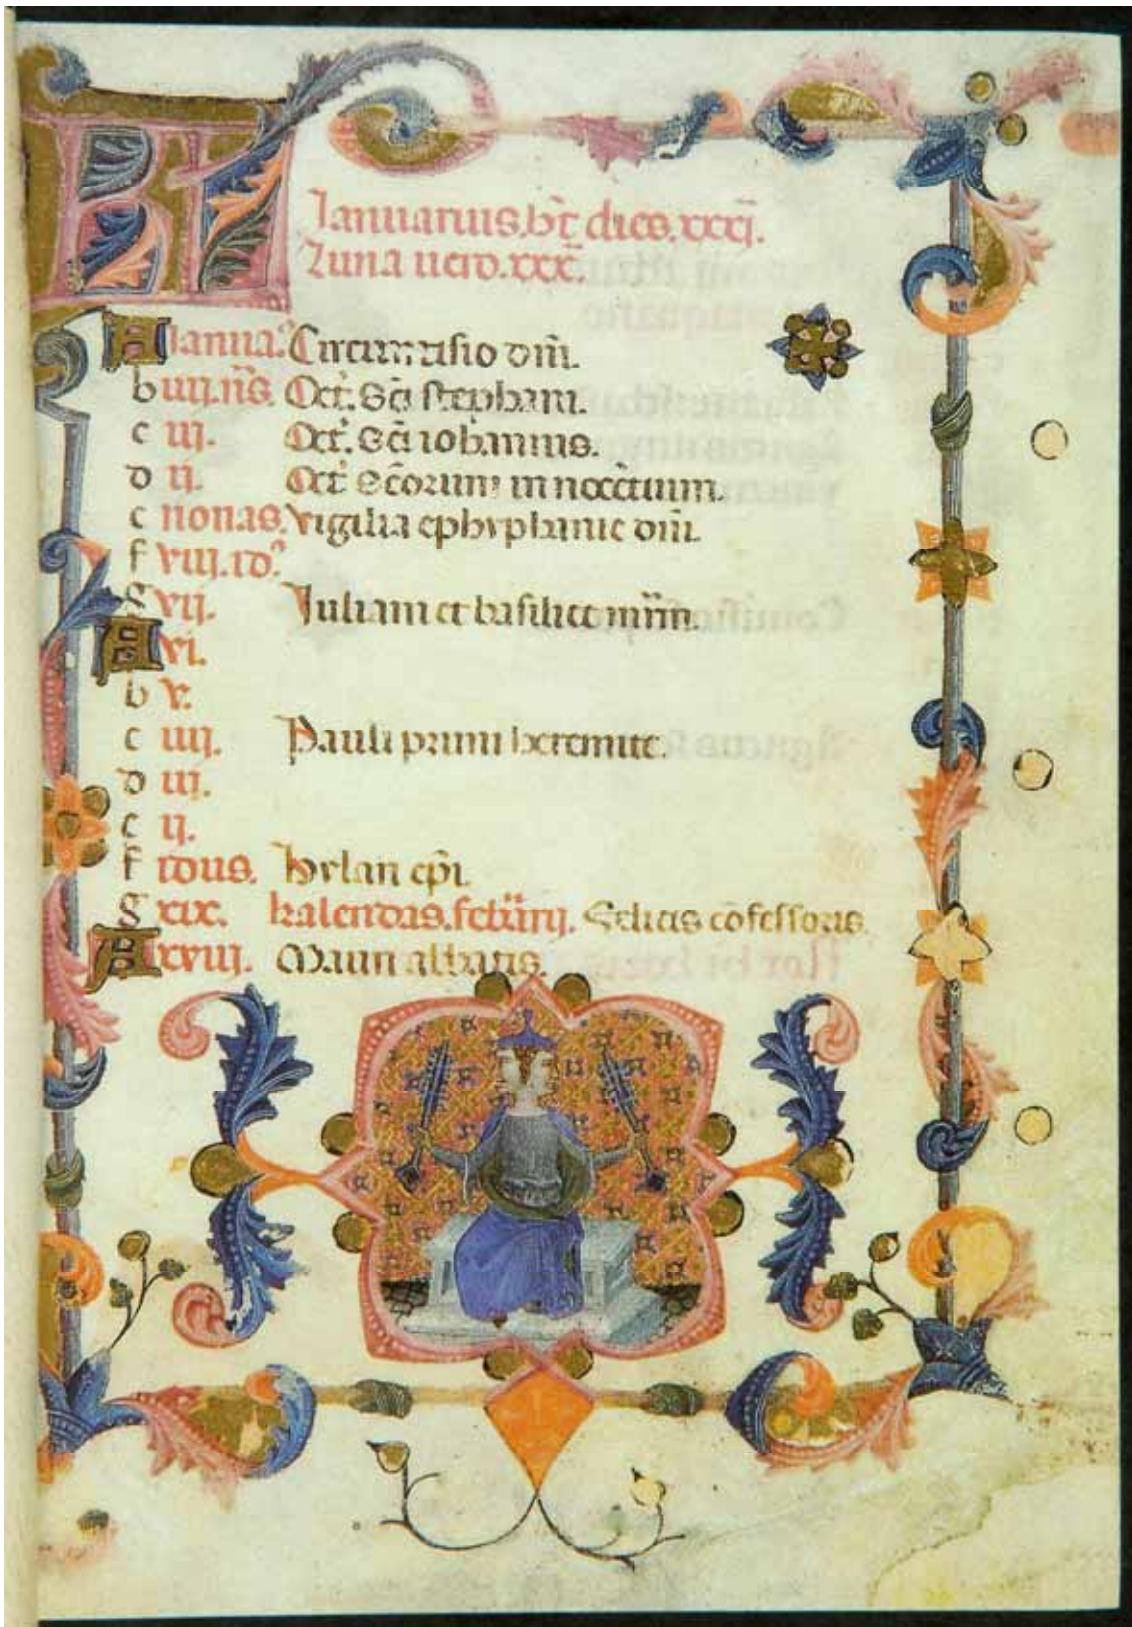 KL
Ianuarius. hr̄t dies. xxxj.
Luna uero. xxx.
A Ianua⁹. Circumcisio dñi.
b iiij. ñs. Oct̄. Sc̄i stephani.
c iij. Oct̄. Sc̄i iohannis.
d ij. Oct̄ Sc̄orum innocētium.
e nonas. Vigilia ephyphanie dñi.
f viij. id⁹.
g vij. Iuliani et basilice mr̄m.
A vi.
b v.
c iiij. Pauli primi heremite.
d iij.
e ij.
f idus. hylarii ep̄i.
g xix. kalendas. februarij. Felicis cōfessoris.
A xviij. Mauri abbatis.